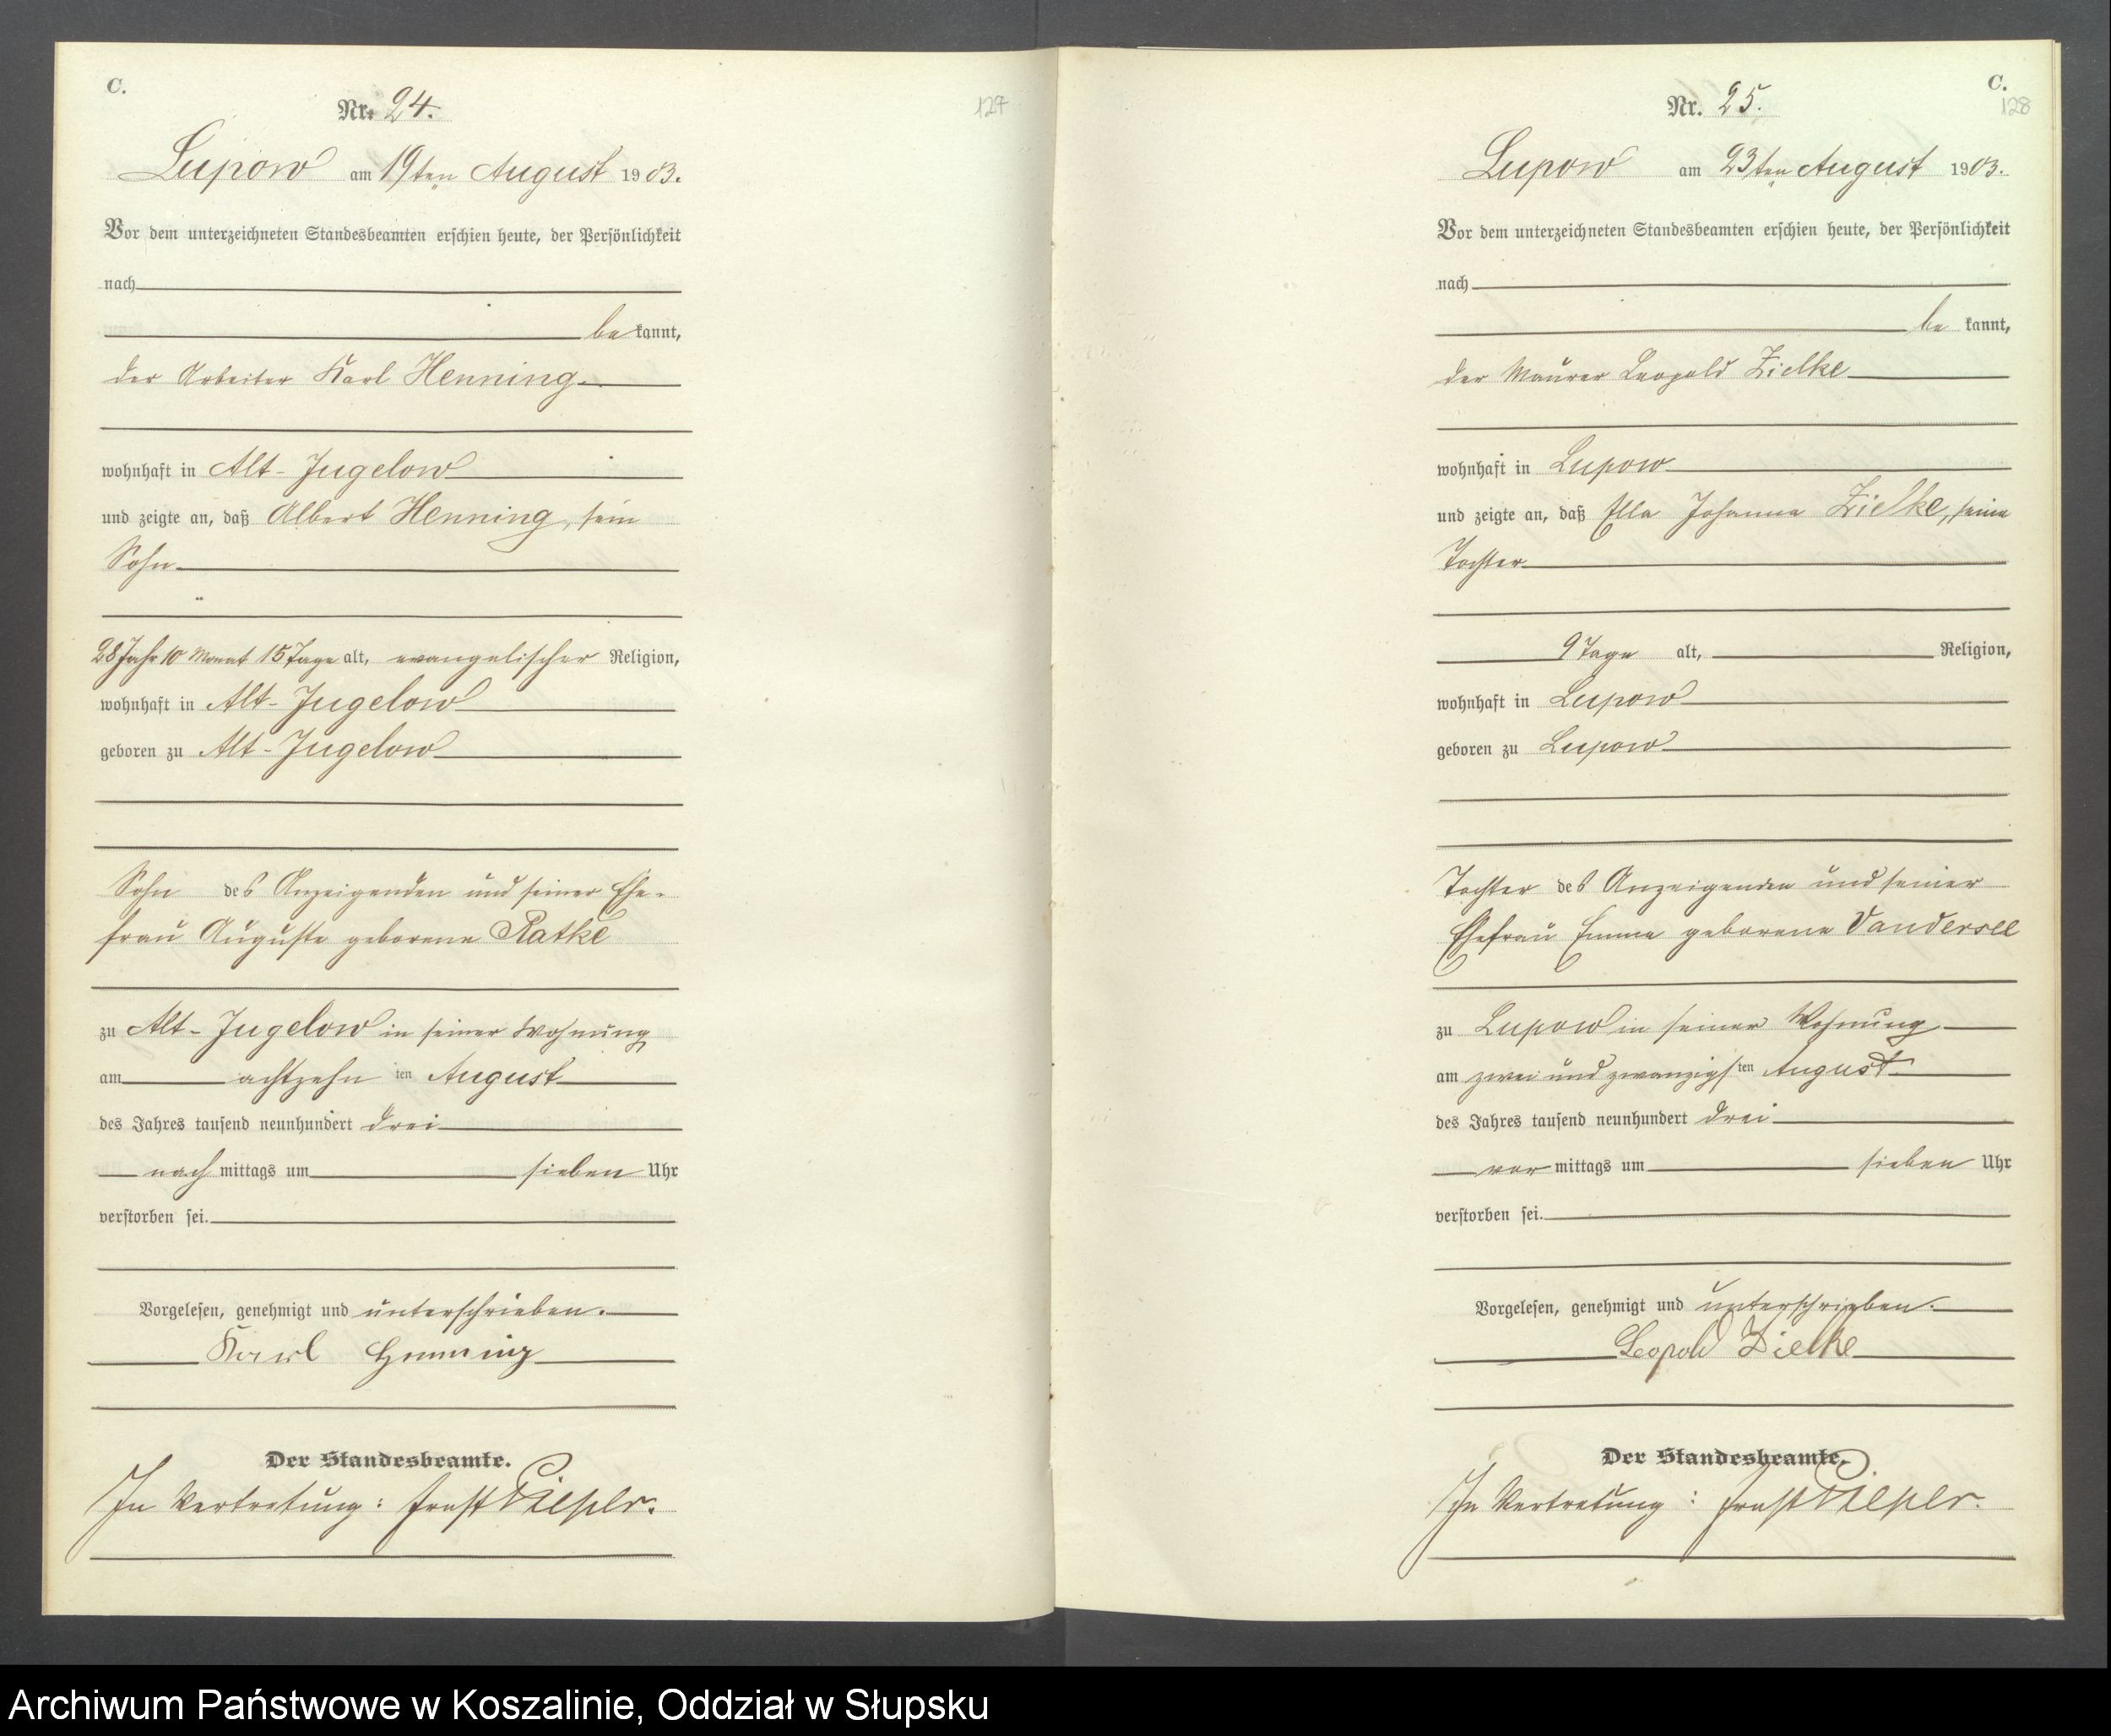 C.
Nr. 24.
127
Lupow am 19ten August 1903.
Vor dem unterzeichneten Standesbeamten erschien heute, der Persönlichkeit
nach
be kannt,
der Arbeiter Karl Henning
wohnhaft in Alt-Jugelow
und zeigte an, daß Albert Henning, sein
Sohn
28 Jahr 10 Monat 15 Tage alt, evangelischer Religion,
wohnhaft in Alt-Jugelow
geboren zu Alt-Jugelow
Sohn des Anzeigenden und seiner Ehe-
frau Auguste geborene Ratke
zu Alt-Jugelow in seiner Wohnung
am achtzehn ten August
des Jahres tausend neunhundert drei
nach mittags um sieben Uhr
verstorben sei.
Vorgelesen, genehmigt und unterschrieben.
Karl Henning
Der Standesbeamte.
In Vertretung: Ernst Pieper.
C.
Nr. 25.
128
Lupow am 23ten August 1903.
Vor dem unterzeichneten Standesbeamten erschien heute, der Persönlichkeit
nach
be kannt,
der Maurer Leopold Zielke
wohnhaft in Lupow
und zeigte an, daß Ella Johanna Zielke, seine
Tochter
9 Tage alt, Religion,
wohnhaft in Lupow
geboren zu Lupow
Tochter des Anzeigenden und seiner
Ehefrau Emma geborene Vandersee
zu Lupow in seiner Wohnung
am zwei und zwanzigsten August
des Jahres tausend neunhundert drei
vor mittags um sieben Uhr
verstorben sei.
Vorgelesen, genehmigt und unterschrieben.
Leopold Zielke
Der Standesbeamte.
In Vertretung: Ernst Pieper.
Archiwum Państwowe w Koszalinie, Oddział w Słupsku